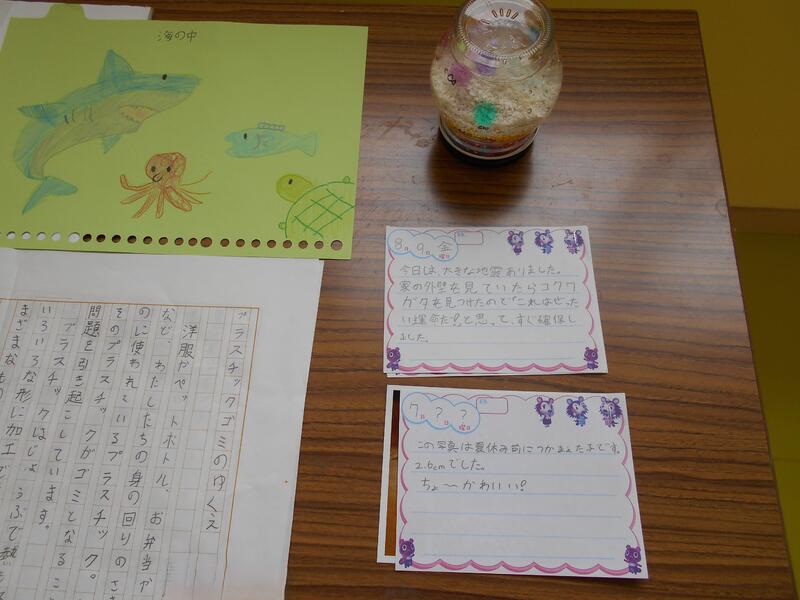 海の中
8月9日金曜日
今日は、大きな地震ありました。
家の外壁を見ていたらコクワ
ガタを見つけたので「これはぜった
い運命だ!」と思って、すぐ確保し
ました。
7月?日?曜日
この写真は夏休み前につかまえた子です。
2.6cmでした。
ちょ〜かわいい!
プラスチックゴミのゆくえ
洋服やペットボトル、お弁当や
など、わたしたちの身の回りのさ
のに使われているプラスチック。
そのプラスチックがゴミとなるこ
問題を引き起こしています。
プラスチックはじょうぶで熱
いろいろな形に加工
まざまなもの